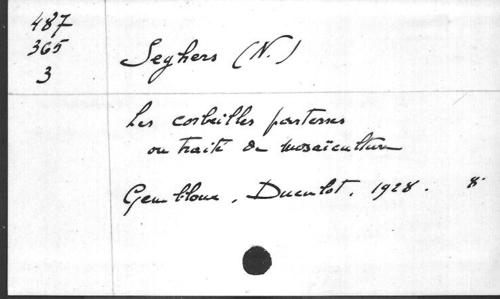 487
365
3
Seghers (N.)
Les corbeilles parterres
ou traité de mosaïculture
Gembloux, Duculot, 1928. 8°